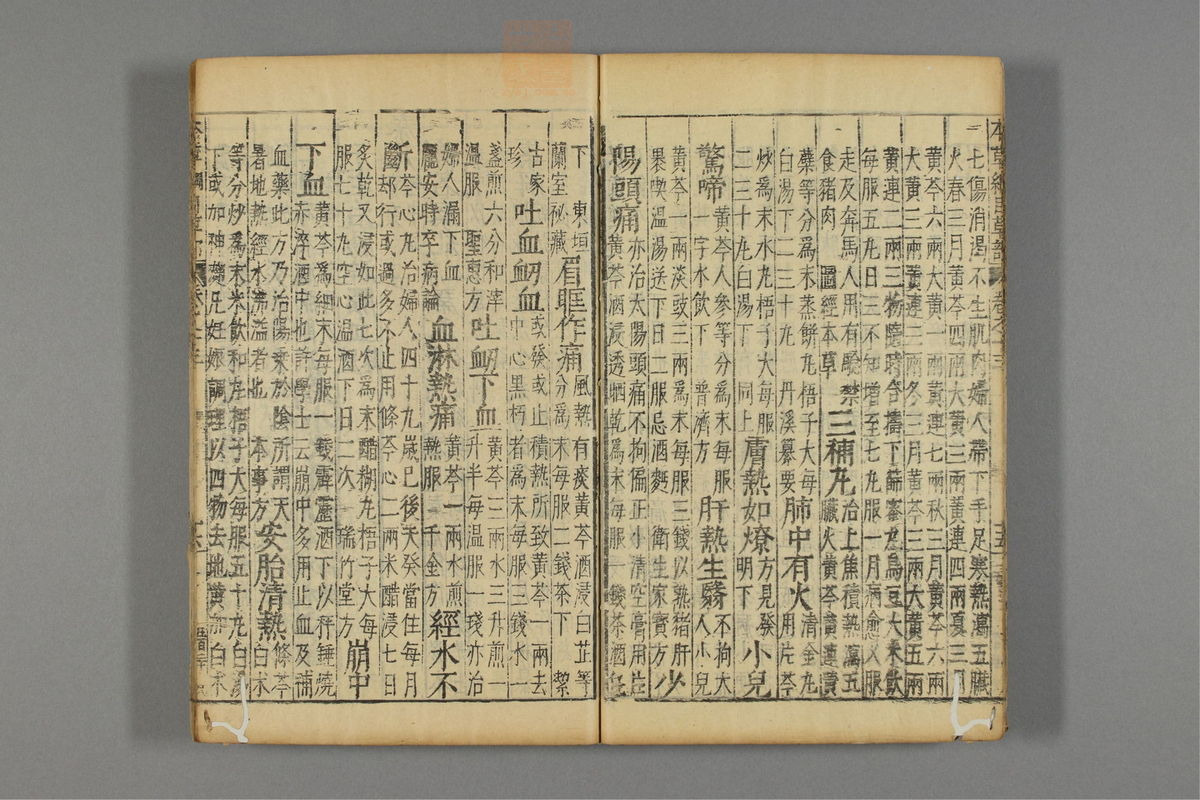 七傷消渴不生肌肉婦人帶下手足寒熱瀉五臟
火春三月黃芩四兩大黃三兩黃連四兩夏三月
黃芩六兩大黃一兩黃連七兩秋三月黃芩六兩
大黃三兩黃連三兩冬三月黃芩三兩大黃五兩
黃連二兩三物隨時合擣下篩蜜丸烏豆大米飲
每服五丸日三不知增至七丸服一月病愈久服
走及奔馬人用有驗禁
食豬肉 圖經本草 三補丸治上焦積熱瀉五
臟火黃芩黃連黃
蘗等分爲末蒸餅丸梧子大每
白湯下二三十丸 丹溪纂要 肺中有火清金丸
用片芩
炒爲末水丸梧子大每服
二三十丸白湯下 同上 膚熱如燎方見發
明下 小兒
驚啼黃芩人參等分爲末每服
一字水飲下 普濟方 肝熱生翳不拘大
人小兒
黃芩一兩淡豉三兩爲末每服三錢以熟豬肝
裹喫溫湯送下日二服忌酒麪 衛生家寶方 少
陽頭痛亦治太陽頭痛不拘偏正小清空膏用片
黃芩酒浸透晒乾爲末每服一錢茶酒任
下 東垣
蘭室祕藏 眉眶作痛風熱有痰黃芩酒浸白芷等
分爲末每服二錢茶下 絜
古家
珍 吐血衂血或發或止積熱所致黃芩一兩去
中心黑朽者爲末每服三錢水一
盞煎六分和滓
溫服 聖惠方 吐衂下血黃芩三兩水三升煎一
升半每溫服一琖亦治
婦人漏下血
龐安時卒病論 血淋熱痛黃芩一兩水煎
熱服 千金方 經水不
斷芩心丸治婦人四十九歲已後天癸當住每月
却行或過多不止用條芩心二兩米醋浸七日
炙乾又浸如此七次爲末醋糊丸梧子大每
服七十丸空心溫酒下日二次 瑞竹堂方 崩中
下血黃芩爲細末每服一錢霹靂酒下以秤錘燒
赤淬酒中也許學士云崩中多用止血及補
血藥此方乃治陽乘於陰所謂天
暑地熱經水沸溢者也 本事方 安胎清熱條芩
白术
等分炒爲末米飲和丸梧子大每服五十丸白湯
下或加神麴凡妊娠調理以四物去地黃加白术